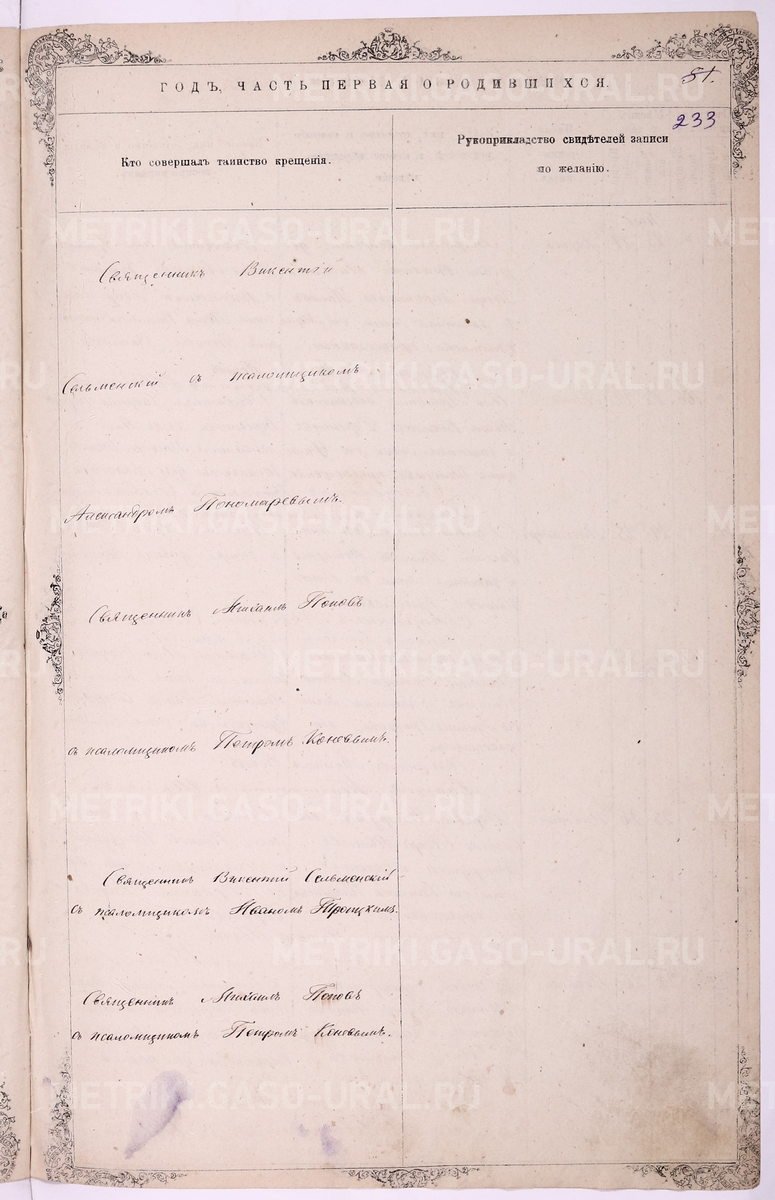 ГОДЪ, ЧАСТЬ ПЕРВАЯ О РОДИВШИХСЯ.
81.
233
Кто совершалъ таинство крещенія.
Рукоприкладство свидѣтелей записи
по желанію.
Священникъ Викентій
Сельменскій съ псаломщикомъ
Александромъ Пономаревымъ.
Священникъ Михаилъ Поповъ
съ псаломщикомъ Петромъ Коневымъ.
Священникъ Викентій Сельменскій
съ псаломщикомъ Иваномъ Троицкимъ.
Священникъ Михаилъ Поповъ
съ псаломщикомъ Петромъ Коневымъ.
METRIKI.GASO-URAL.RU